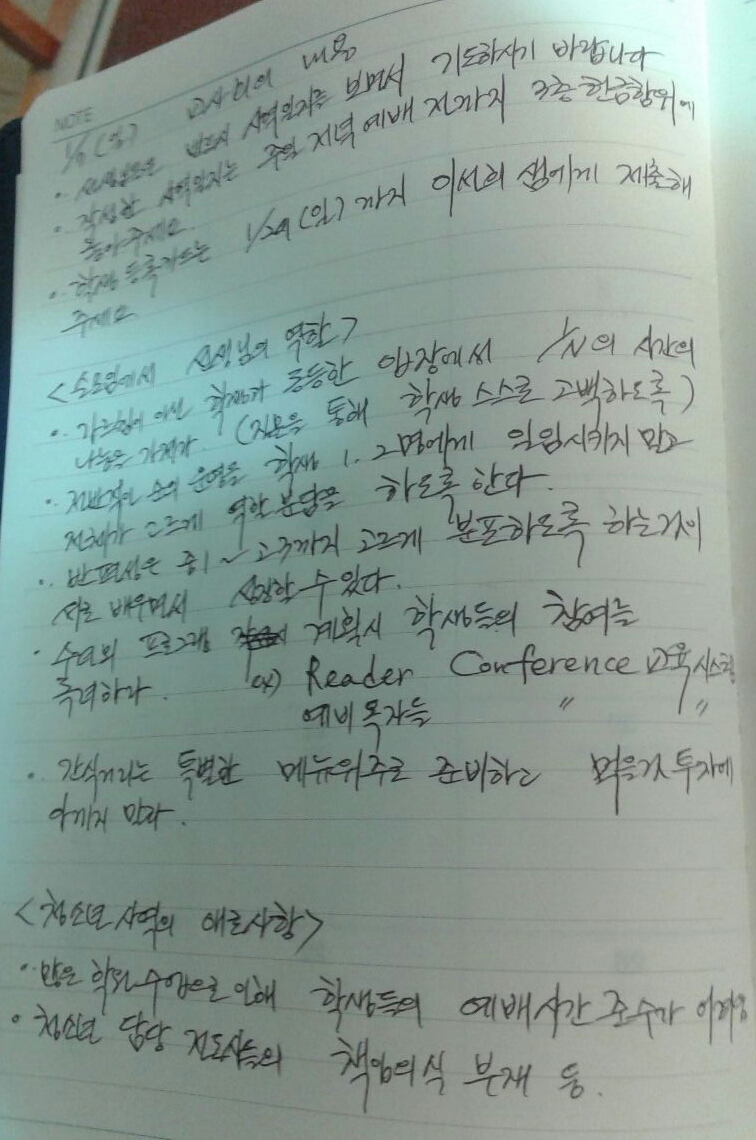 NOTE
1/8 (일) 교사회의 내용
· 선생님들은 반드시 사역일지를 보면서 기도하시기 바랍니다
· 작성한 사역일지는 주일 저녁예배 전까지 3층 헌금함위에
놓아주세요.
· 학생 등록카드는 1/29 (일) 까지 이선희 샘에게 제출해
주세요
<소모임에서 선생님의 역할>
· 가르침이 아닌 학생과 동등한 입장에서 1/N의 시간의
나눔을 가져라. (질문을 통해 학생 스스로 고백하도록)
· 전반적인 순의 운영을 학생 1, 2명에게 일임시키지 말고
전체가 고르게 역할분담을 하도록 한다.
· 반편성은 중1 ~ 고3까지 고르게 분포하도록 하는것이
서로 배우면서 성장할 수 있다.
· 수련회 프로그램 계획시 학생들의 참여를
독려하라. ex) Reader Conference 교육시스템
예비목자들 〃 〃
· 간식거리는 특별한 메뉴위주로 준비하고 먹을것 투자에
아끼지 말라.
<청소년 사역의 애로사항>
· 많은 학과수업으로 인해 학생들의 예배시간 준수가 어려움
· 청소년 담당 전도사들의 책임의식 부재 등.